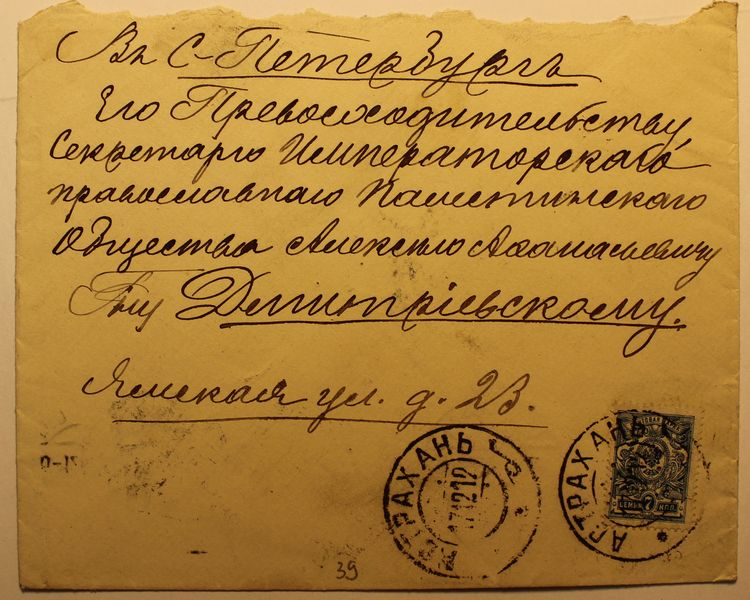 Въ С-Петербургъ
Его Превосходительству
Секретарю Императорскаго
православнаго Палестинскаго
Общества Алексѣю Аѳанасьевичу
Гну Дмитріевскому.
Ямская ул. д. 23.
АСТРАХАНЬ
АСТРАХАНЬ
СЕМЬ 7 КОП.
39